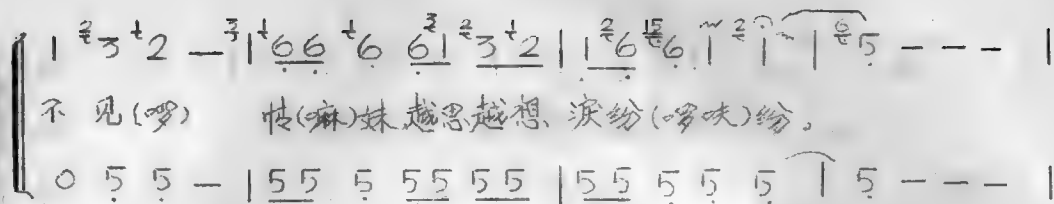 1 3 2 — | 6 6 6 6 1 3 2 | 1 6 6 1 1 | 5 - - - |
不见(啰) 情(嘛)妹越思越想 泪纷(啰呋)纷。
0 5 5 — | 5 5 5 5 5 5 5 | 5 5 5 5 5 | 5 - - - |